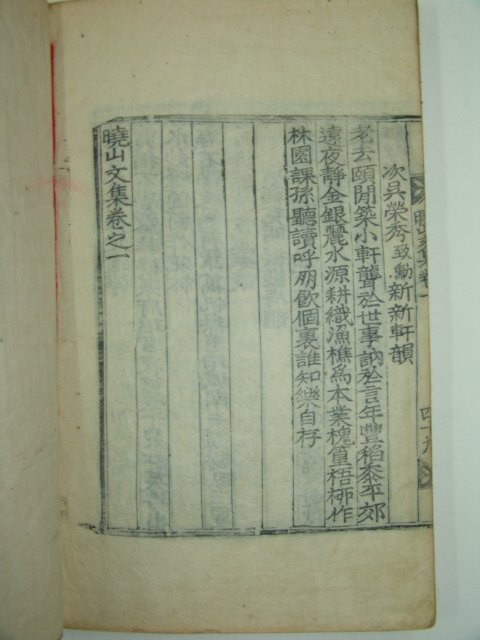 次吳榮秀致勳新新軒韻
老去頤閒築小軒聾於世事訥於言年豐稻黍平郊
遠夜靜金銀麗水源耕織漁樵爲本業槐篁梧柳作
林園課孫聽讀呼朋飮個裏誰知樂自存
曉山文集卷之一